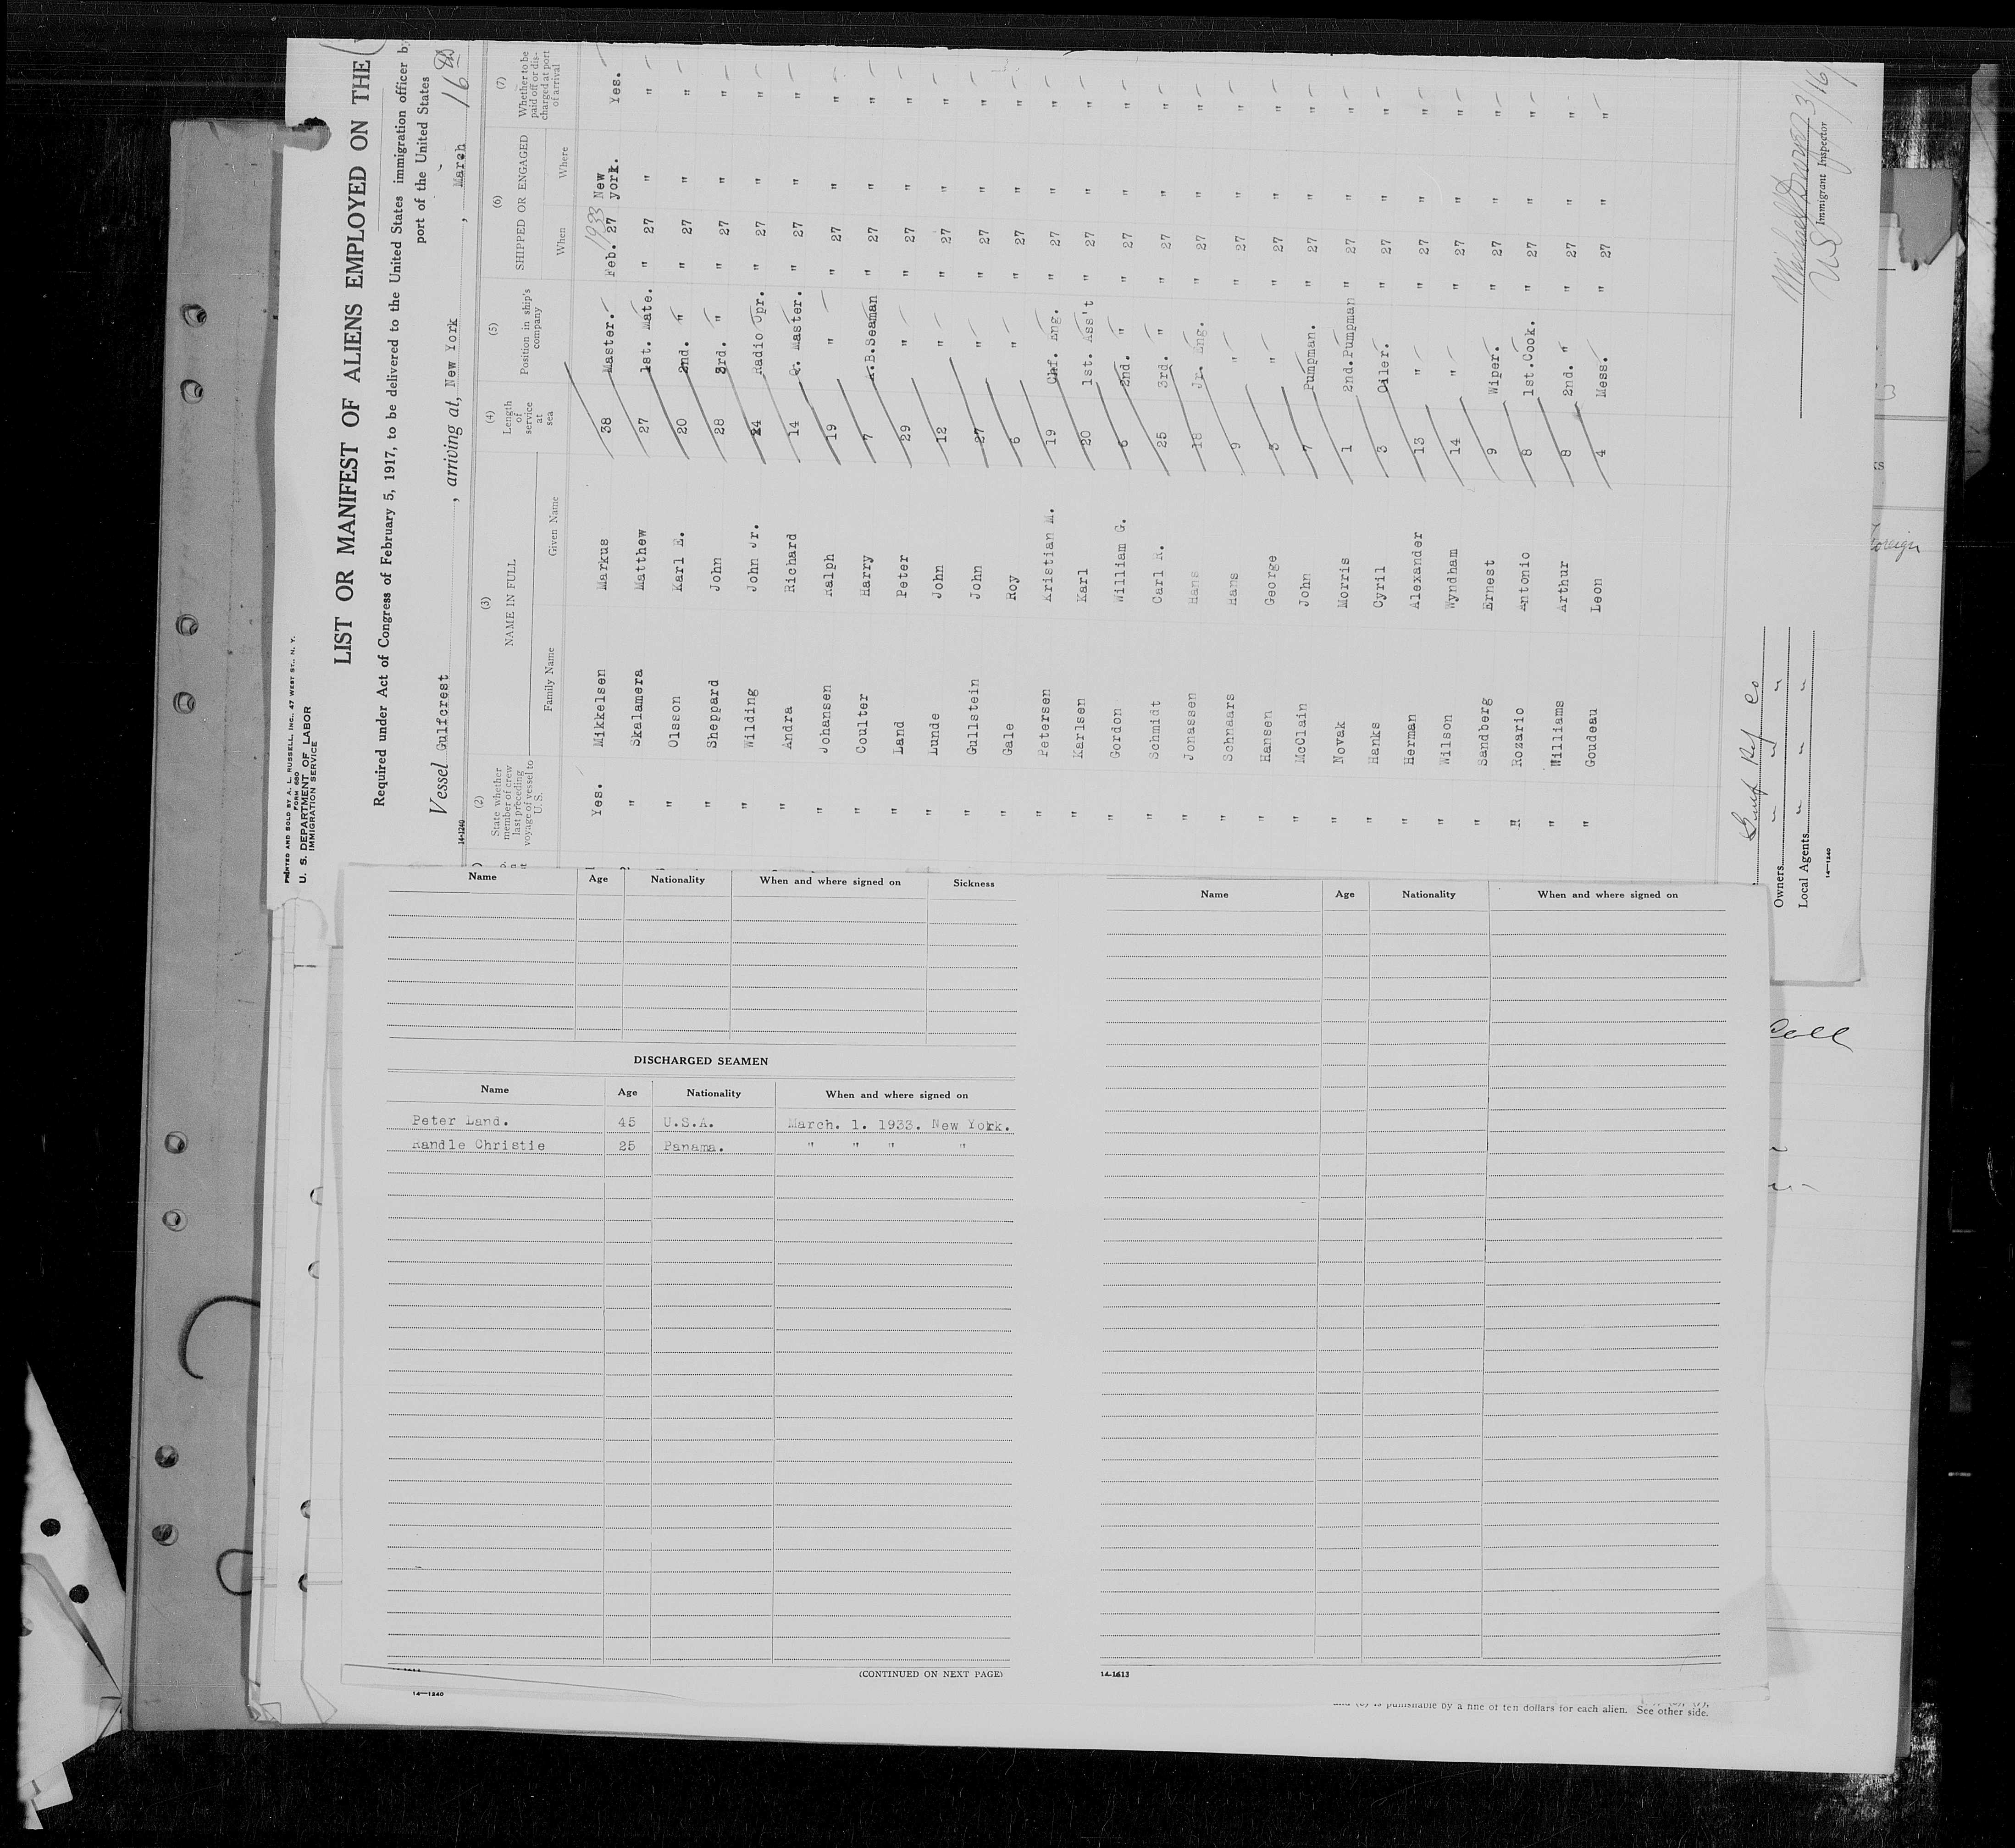 PRINTED AND SOLD BY A. L. RUSSELL, INC., 47 WEST ST., N. Y.
FORM 680
U. S. DEPARTMENT OF LABOR
IMMIGRATION SERVICE
LIST OR MANIFEST OF ALIENS EMPLOYED ON THE
Required under Act of Congress of February 5, 1917, to be delivered to the United States immigration officer by
port of the United States
Vessel Gulfcrest, arriving at, New York, March 16th
14-1240
(2) State whether member of crew last preceding voyage of vessel to U. S.
(3) NAME IN FULL
Family Name Given Name
(4) Length of service at sea
(5) Position in ship's company
(6) SHIPPED OR ENGAGED
When Where
(7) Whether to be paid off or discharged at port of arrival
1933
Yes. Mikkelsen Markus 38 Master. Feb. 27 New york. Yes.
" Skalamera Matthew 27 1st. Mate. " 27 " "
" Olsson Karl E. 20 2nd. " " 27 " "
" Sheppard John 28 3rd. " " 27 " "
" Wilding John Jr. 24 Radio Opr. " 27 " "
" Andra Richard 14 Q. Master. " 27 " "
" Johansen Ralph 19 " " 27 " "
" Coulter Harry 7 A.B.Seaman " 27 " "
" Land Peter 29 " " 27 " "
" Lunde John 12 " " 27 " "
" Gullstein John 27 " " 27 " "
" Gale Roy 6 " " 27 " "
" Petersen Kristian M. 19 Chf. Eng. " 27 " "
" Karlsen Karl 20 1st. Ass't " 27 " "
" Gordon William G. 6 2nd. " " 27 " "
" Schmidt Carl A. 25 3rd. " " 27 " "
" Jonassen Hans 18 Jr. Eng. " 27 " "
" Schnaars Hans 9 " " 27 " "
" Hansen George 3 " " 27 " "
" McClain John 7 Pumpman. " 27 " "
" Novak Morris 1 2nd.Pumpman " 27 " "
" Hanks Cyril 3 Oiler. " 27 " "
" Herman Alexander 13 " " 27 " "
" Wilson Wyndham 14 " " 27 " "
" Sandberg Ernest 9 Wiper. " 27 " "
" Rozario Antonio 8 1st.Cook. " 27 " "
" Williams Arthur 8 2nd. " " 27 " "
" Goudeau Leon 4 Mess. " 27 " "
3/16/
Immigrant Inspector
Gulf Rf Co
Owners " " "
Local Agents " " "
14-1240
Foreign
Name Age Nationality When and where signed on Sickness
DISCHARGED SEAMEN
Name Age Nationality When and where signed on
Peter Land. 45 U.S.A. March. 1. 1933. New York.
Randle Christie 25 Panama. " " " "
(CONTINUED ON NEXT PAGE)
14-1240
Name Age Nationality When and where signed on
14-1613
is punishable by a fine of ten dollars for each alien. See other side.